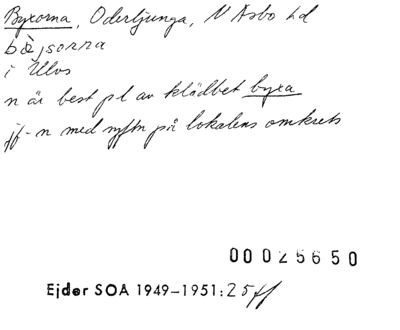 Byxorna, Oderljunga, N Åsbo hd
bỳjsorna
i Ulvs
n är best pl av klädbet byxa
jf - n med syftn på lokalens omkrets
00 025650
Ejder SOA 1949-1951:25ff